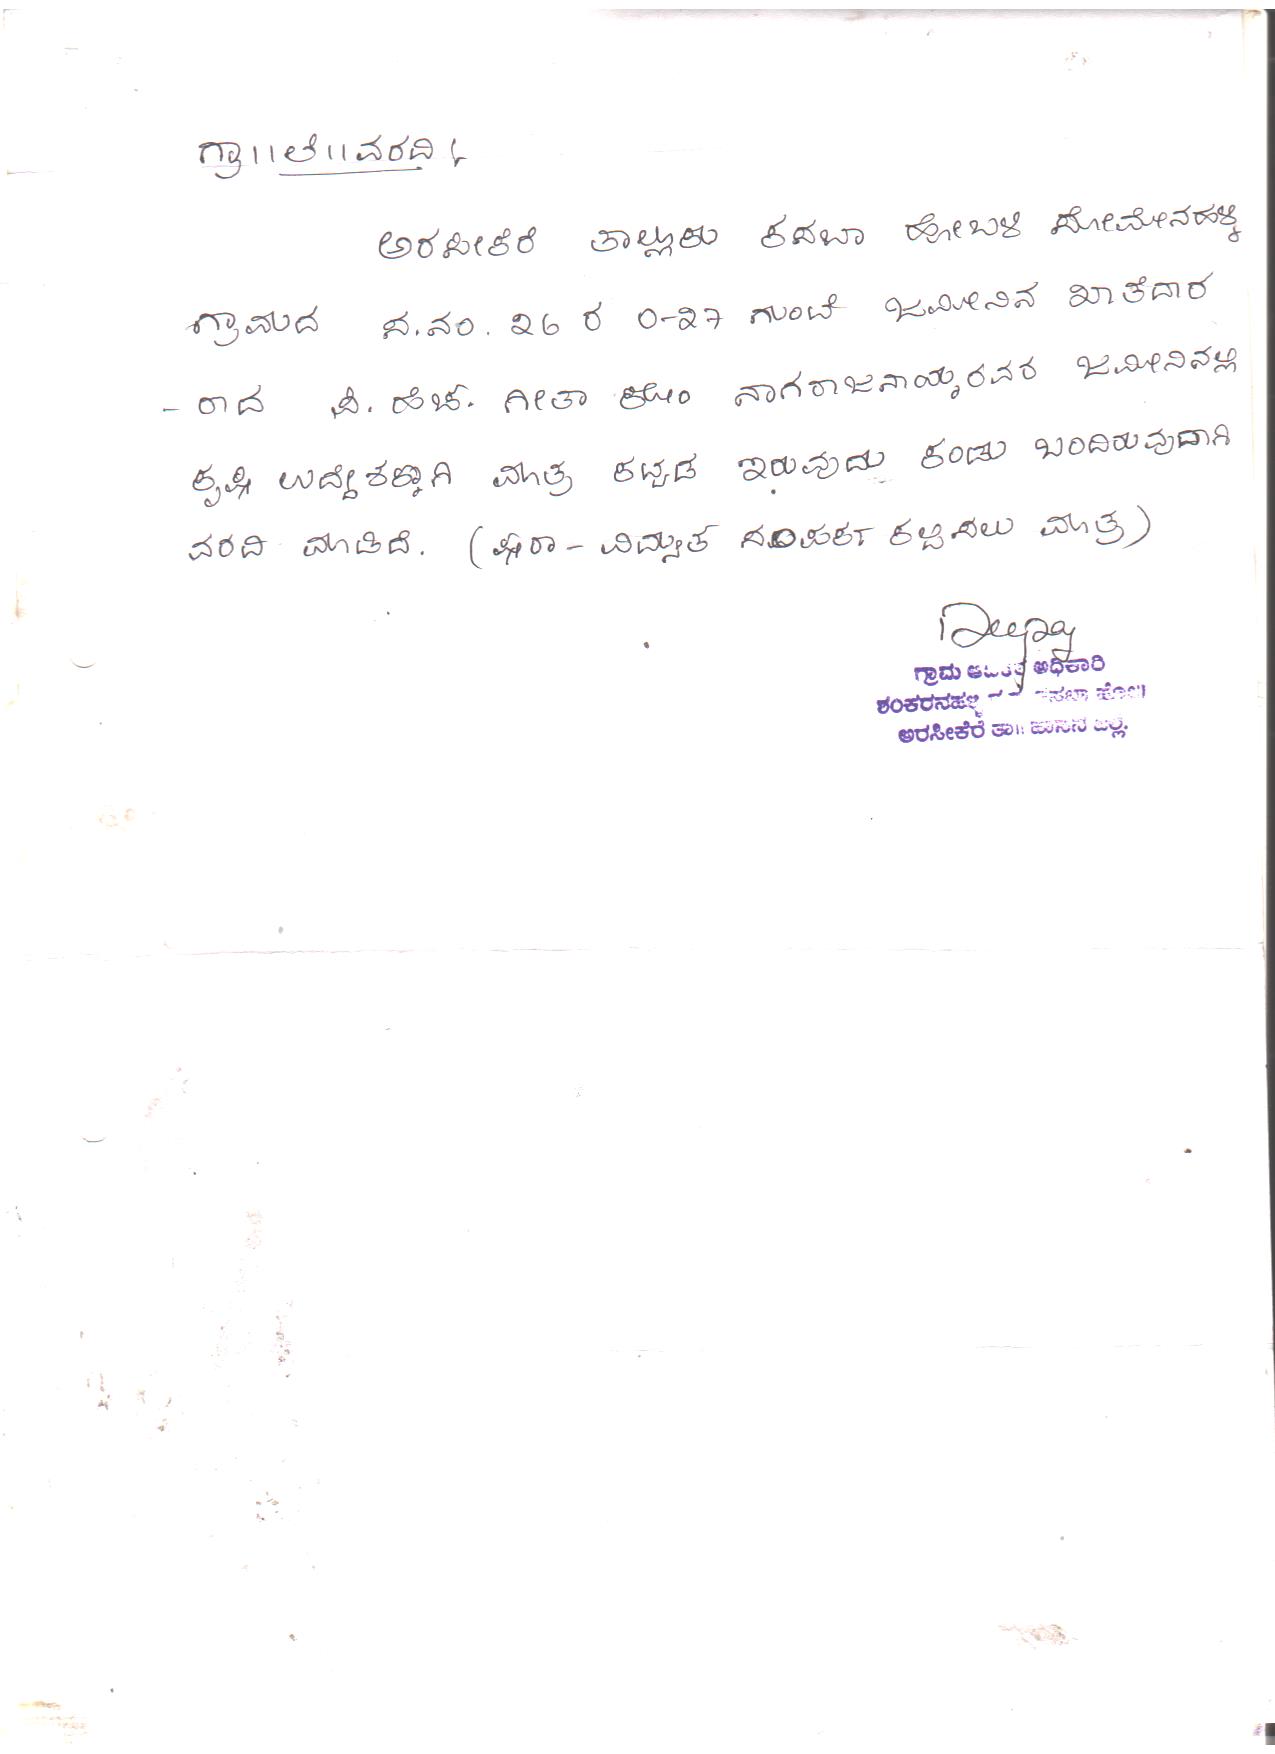 ಗ್ರಾ॥ಲೆ॥ವರದಿ
ಅರಸೀಕೆರೆ ತಾಲ್ಲೂಕು ಕಸಬಾ ಹೋಬಳಿ ಸೋಮೇನಹಳ್ಳಿ
ಗ್ರಾಮದ ಸ.ನಂ. ೨೬ ರ ೦-೨೭ ಗುಂಟೆ ಜಮೀನಿನ ಖಾತೆದಾರ
- ರಾದ ಪಿ. ಹೆಚ್. ಗೀತಾ ಕೋಂ ನಾಗರಾಜನಾಯ್ಕರವರ ಜಮೀನಿನಲ್ಲಿ
ಕೃಷಿ ಉದ್ದೇಶಕ್ಕಾಗಿ ಮಾತ್ರ ಕಟ್ಟಡ ಇರುವುದು ಕಂಡು ಬಂದಿರುವುದಾಗಿ
ವರದಿ ಮಾಡಿದೆ. (ಷರಾ - ವಿದ್ಯುತ ಸಂಪರ್ಕ ಕಲ್ಪಿಸಲು ಮಾತ್ರ)
ಗ್ರಾಮ ಆಡಳಿತ ಅಧಿಕಾರಿ
ಶಂಕರನಹಳ್ಳಿ ಕಸಬಾ ಹೋ॥
ಅರಸೀಕೆರೆ ತಾ॥ ಹಾಸನ ಜಿಲ್ಲೆ.